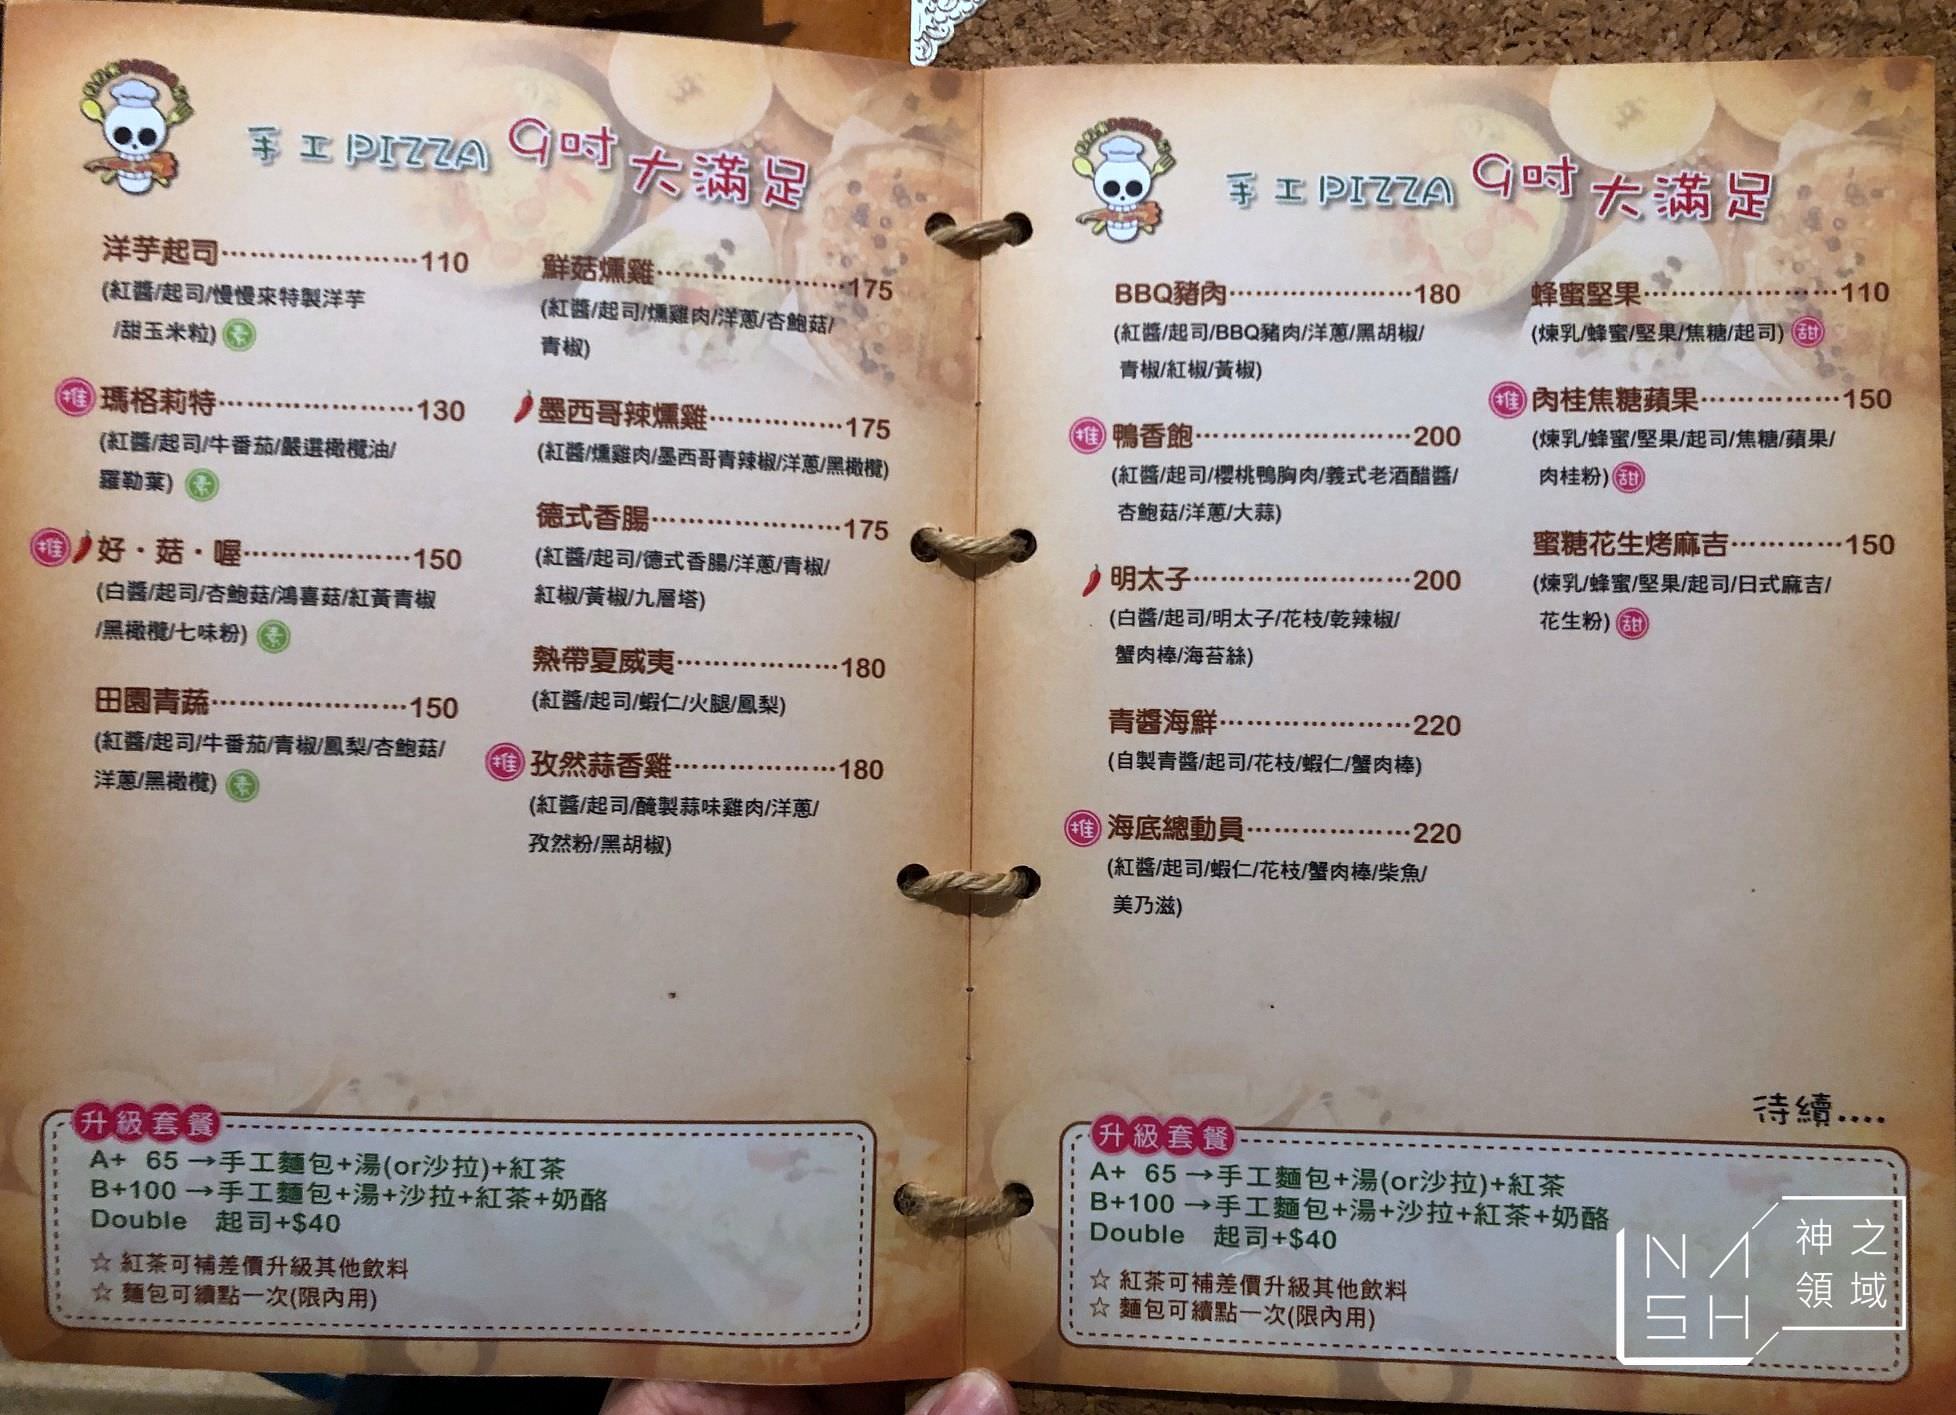 手工PIZZA 9吋大滿足
洋芋起司…………………110
(紅醬/起司/慢慢來特製洋芋
/甜玉米粒) 素
推 瑪格莉特…………………130
(紅醬/起司/牛番茄/嚴選橄欖油/
羅勒葉) 素
推 好・菇・喔………………150
(白醬/起司/杏鮑菇/鴻喜菇/紅黃青椒
/黑橄欖/七味粉) 素
田園青蔬…………………150
(紅醬/起司/牛番茄/青椒/鳳梨/杏鮑菇/
洋蔥/黑橄欖) 素
鮮菇燻雞…………………175
(紅醬/起司/燻雞肉/洋蔥/杏鮑菇/
青椒)
墨西哥辣燻雞……………175
(紅醬/燻雞肉/墨西哥青辣椒/洋蔥/黑橄欖)
德式香腸…………………175
(紅醬/起司/德式香腸/洋蔥/青椒/
紅椒/黃椒/九層塔)
熱帶夏威夷………………180
(紅醬/起司/蝦仁/火腿/鳳梨)
推 孜然蒜香雞………………180
(紅醬/起司/醃製蒜味雞肉/洋蔥/
孜然粉/黑胡椒)
升級套餐
A+ 65→手工麵包+湯(or沙拉)+紅茶
B+100→手工麵包+湯+沙拉+紅茶+奶酪
Double 起司+$40
☆ 紅茶可補差價升級其他飲料
☆ 麵包可續點一次(限內用)
手工PIZZA 9吋大滿足
BBQ豬肉…………………180
(紅醬/起司/BBQ豬肉/洋蔥/黑胡椒/
青椒/紅椒/黃椒)
推 鴨香飽……………………200
(紅醬/起司/櫻桃鴨胸肉/義式老酒醋醬/
杏鮑菇/洋蔥/大蒜)
明太子……………………200
(白醬/起司/明太子/花枝/乾辣椒/
蟹肉棒/海苔絲)
青醬海鮮…………………220
(自製青醬/起司/花枝/蝦仁/蟹肉棒)
推 海底總動員………………220
(紅醬/起司/蝦仁/花枝/蟹肉棒/柴魚/
美乃滋)
蜂蜜堅果…………………110
(煉乳/蜂蜜/堅果/焦糖/起司) 甜
推 肉桂焦糖蘋果……………150
(煉乳/蜂蜜/堅果/起司/焦糖/蘋果/
肉桂粉) 甜
蜜糖花生烤麻吉…………150
(煉乳/蜂蜜/堅果/起司/日式麻吉/
花生粉) 甜
待續....
升級套餐
A+ 65→手工麵包+湯(or沙拉)+紅茶
B+100→手工麵包+湯+沙拉+紅茶+奶酪
Double 起司+$40
☆ 紅茶可補差價升級其他飲料
☆ 麵包可續點一次(限內用)
NASH
神之
領域